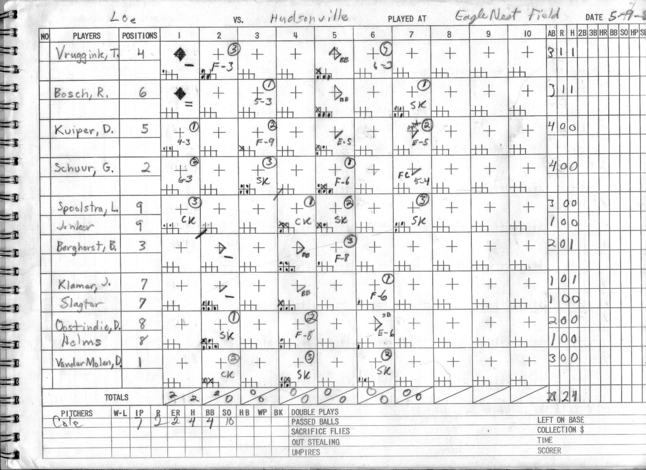 Loe VS. Hudsonville PLAYED AT Eagle Nest Field DATE 5-9-8
NO PLAYERS POSITIONS 1 2 3 4 5 6 7 8 9 10 AB R H 2B 3B HR BB SO HP SB
Vruggink, T. 4 F-3 3 BB 6-3 2 3 1 1
Bosch, R. 6 5-3 1 BB SK 1 3 1 1
Kuiper, D. 5 4-3 1 F-9 2 E-5 E-5 2 4 0 0
Schuur, G. 2 6-3 2 SK 3 F-6 1 FC 5-4 4 0 0
Spoolstra, L. 9 CK 3 CK 1 SK 2 SK 3 3 0 0
Junker 9 1 0 0
Berghorst, B. 3 BB F-8 3 2 0 1
Klamer, J. 7 BB F-6 1 1 0 1
Slagter 7 1 0 0
Oostindie, D. 8 SK 1 F-8 2 E-6 2 0 0
Helms 8 1 0 0
VanderMolen, D. 1 CK 3 SK 3 SK 2 3 0 0
TOTALS 2 2 2 0 0 0 0 0 0 0 0 0 0 0 28 2 4
PITCHERS W-L IP R ER H BB SO HB WP BK DOUBLE PLAYS
Cole 7 2 2 4 4 10 PASSED BALLS LEFT ON BASE
SACRIFICE FLIES COLLECTION $
OUT STEALING TIME
UMPIRES SCORER